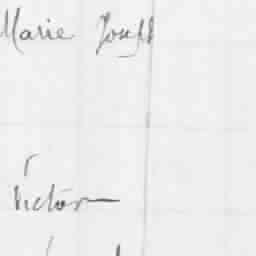 Marie Joseph
Victor